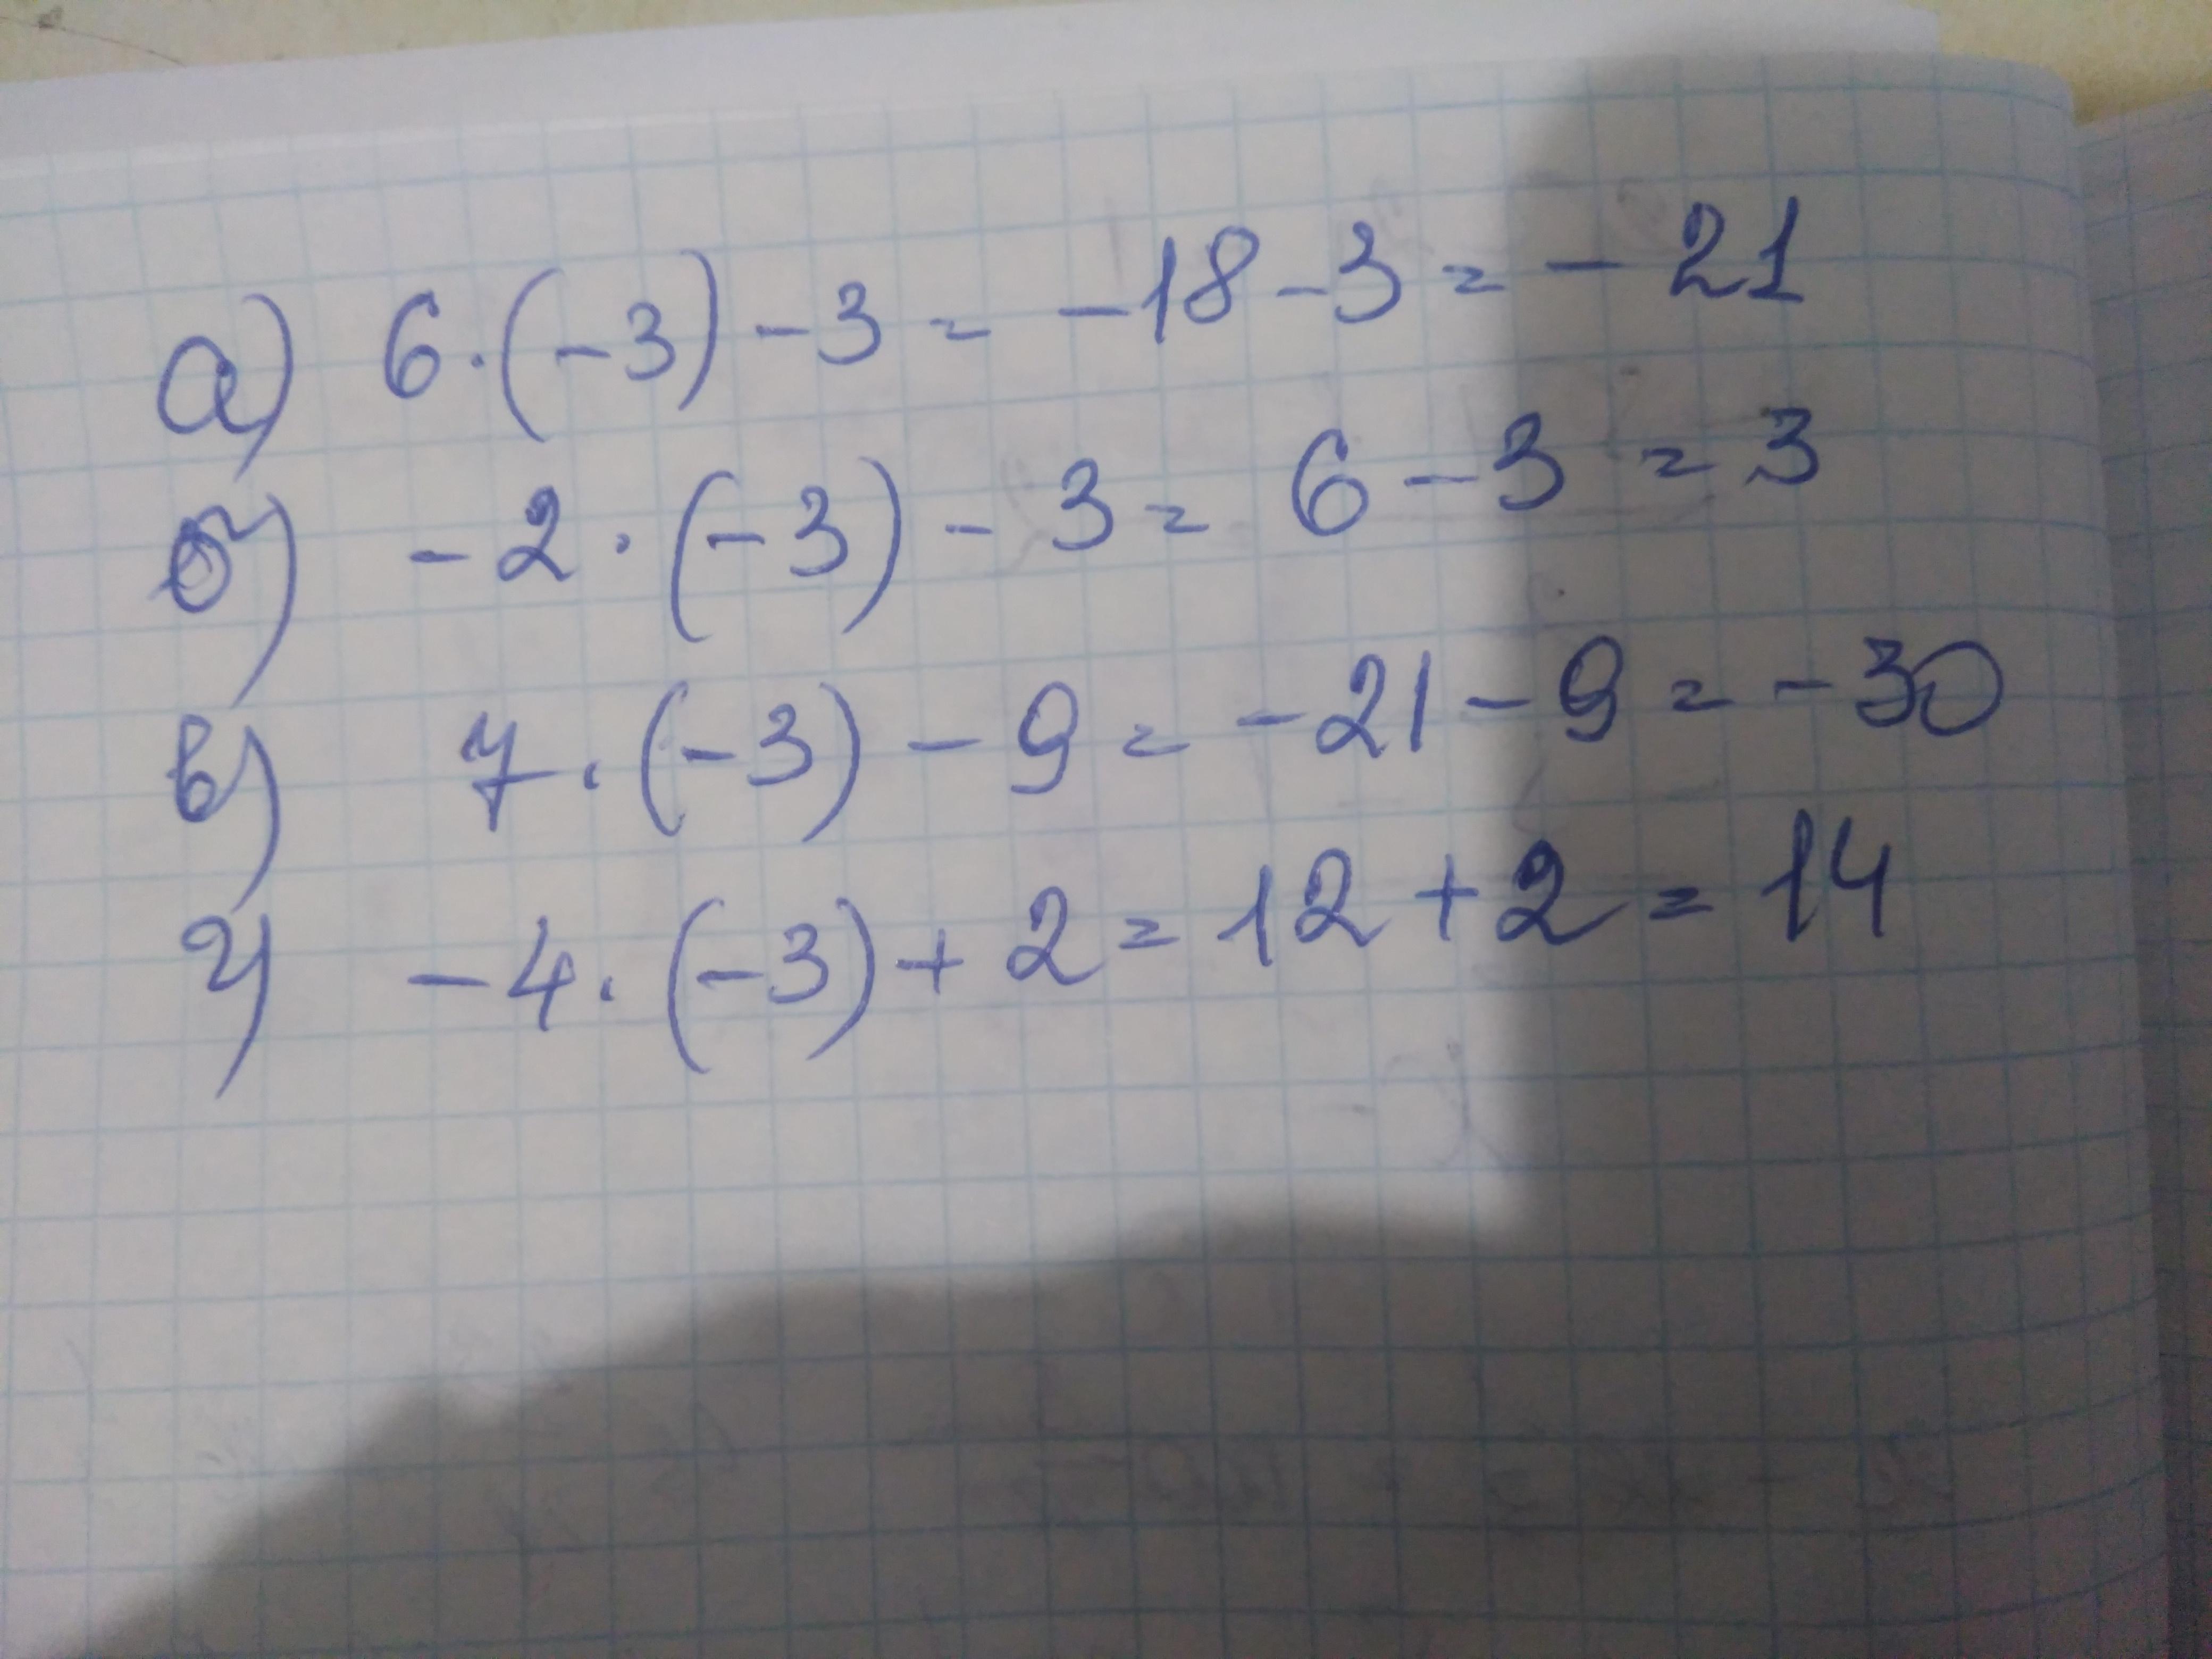 а) 6·(-3)-3= -18-3=-21
б) -2·(-3)-3= 6-3=3
в) 7·(-3)-9=-21-9=-30
г) -4·(-3)+2=12+2=14